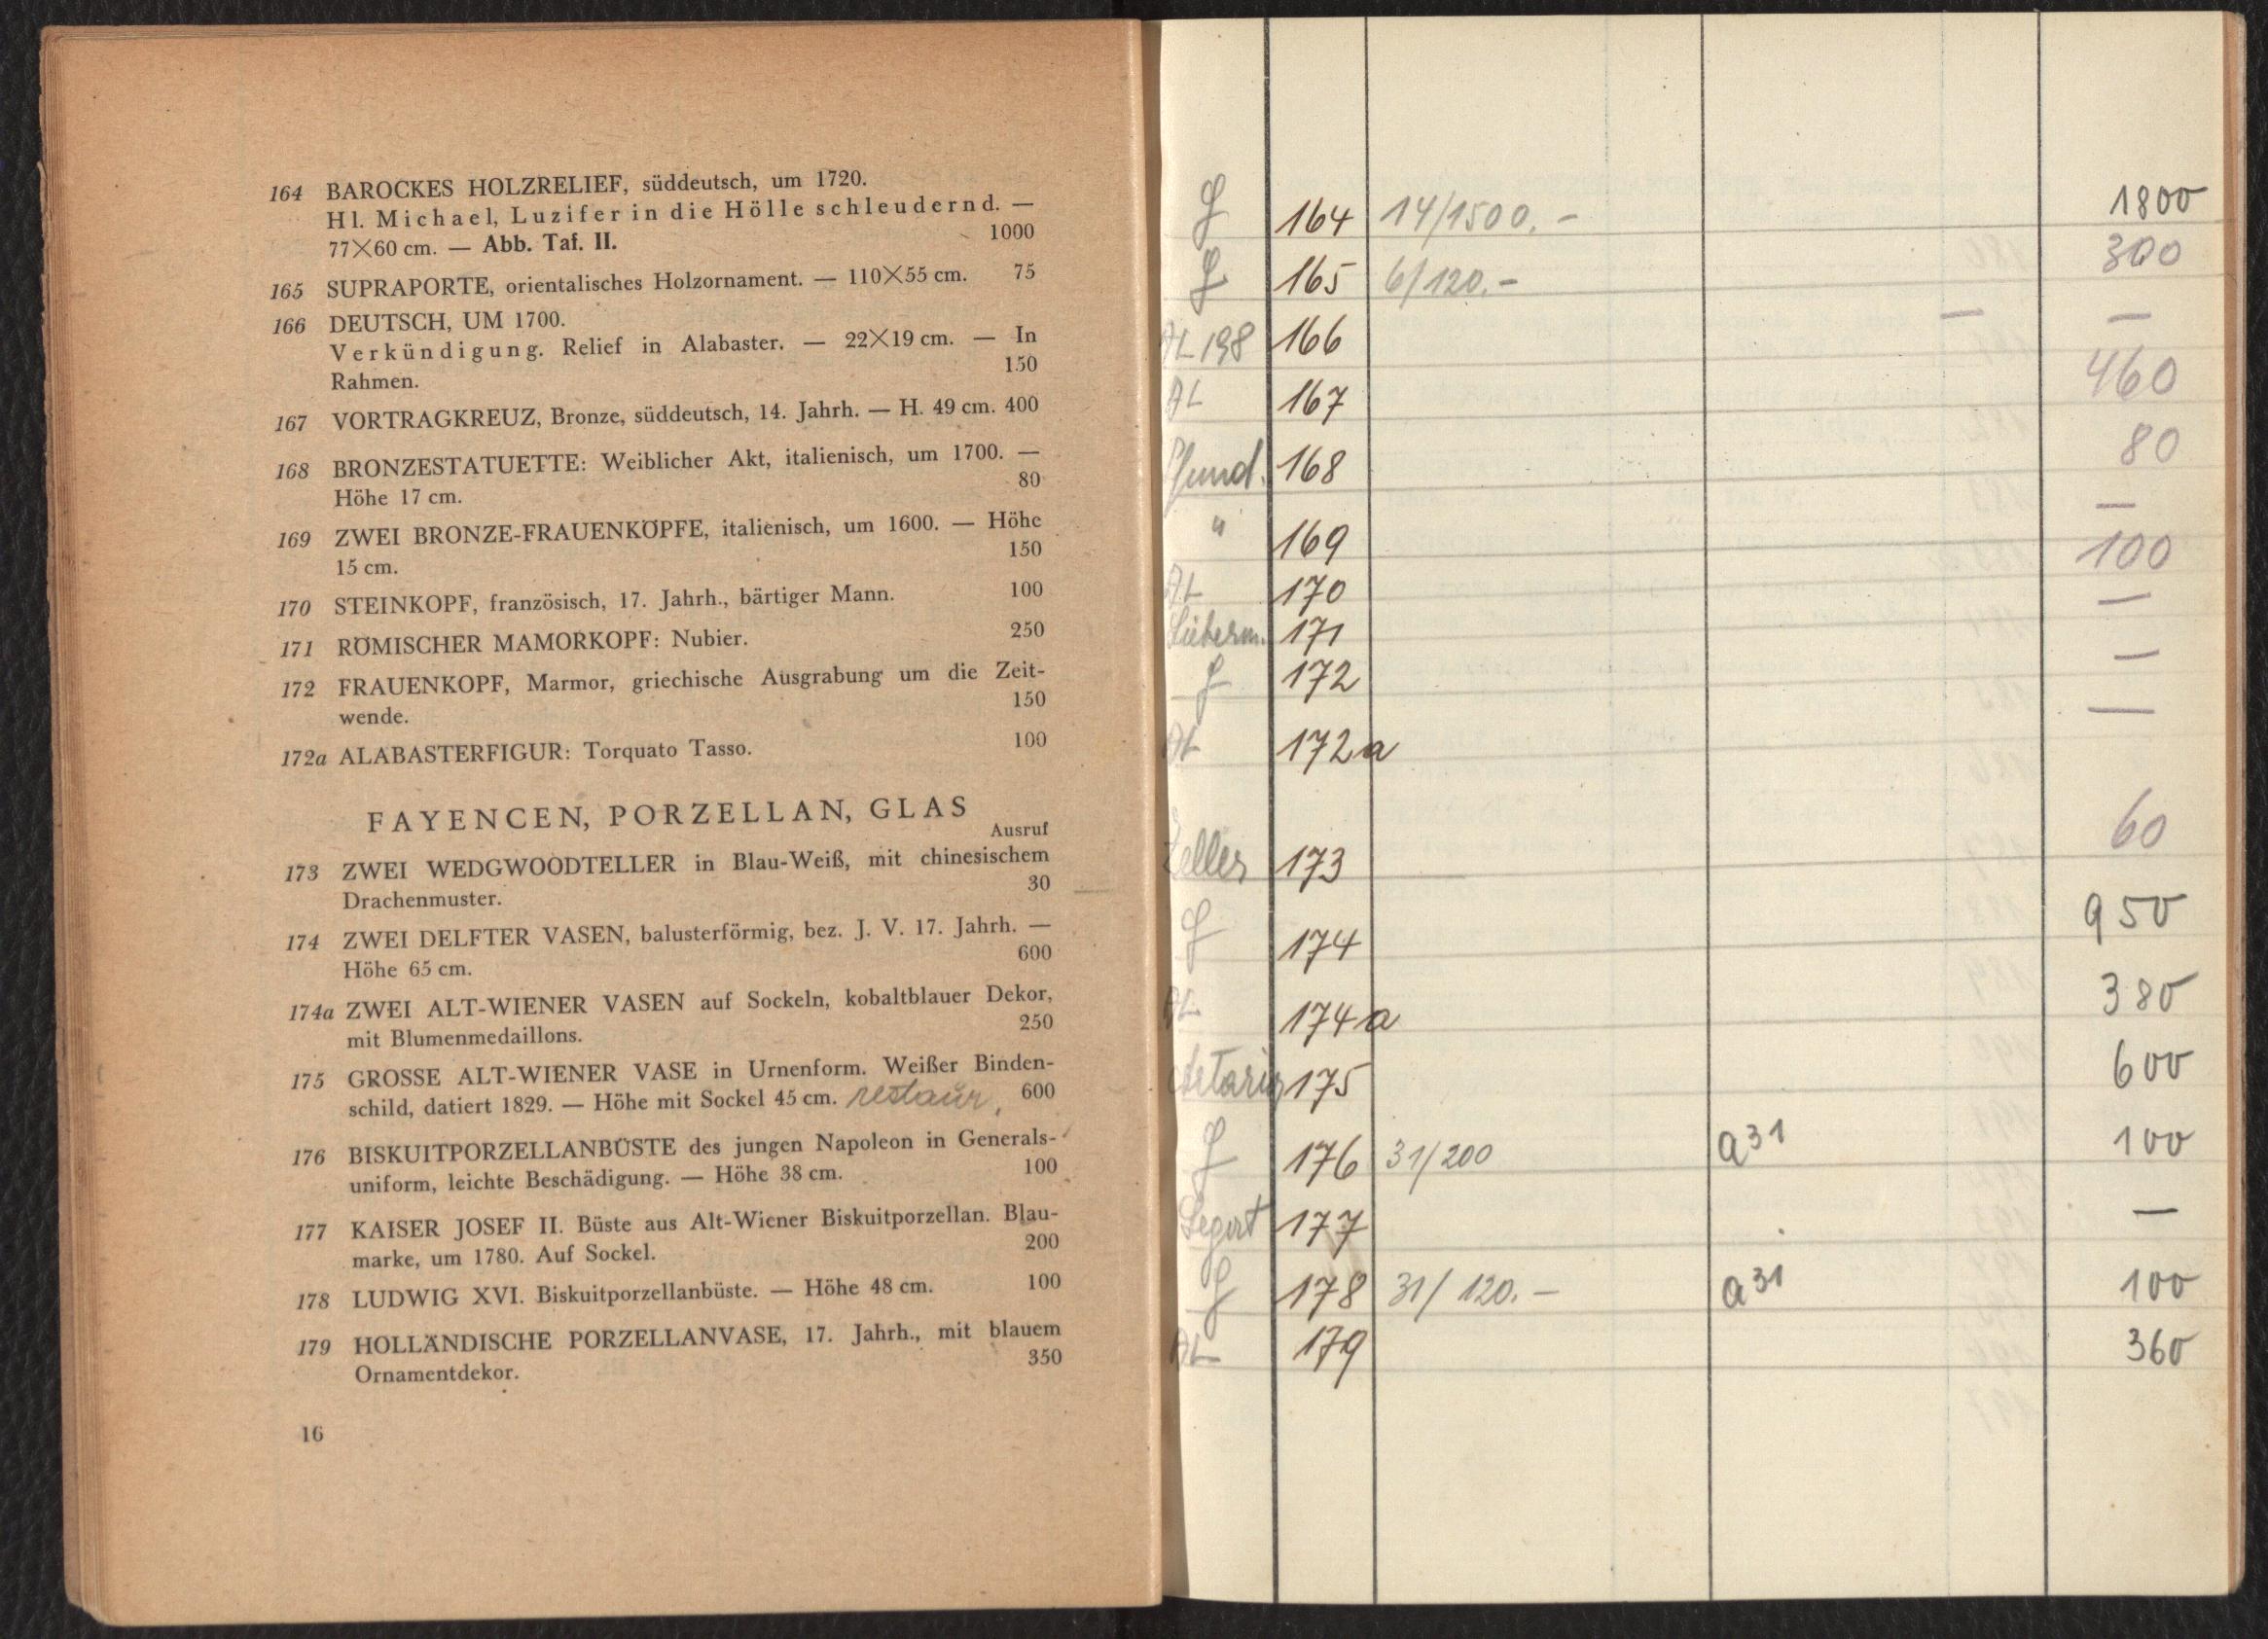 164 BAROCKES HOLZRELIEF, süddeutsch, um 1720.
Hl. Michael, Luzifer in die Hölle schleudernd. —
77×60 cm. — Abb. Taf. II. 1000
165 SUPRAPORTE, orientalisches Holzornament. — 110×55 cm. 75
166 DEUTSCH, UM 1700.
Verkündigung. Relief in Alabaster. — 22×19 cm. — In
Rahmen. 150
167 VORTRAGKREUZ, Bronze, süddeutsch, 14. Jahrh. — H. 49 cm. 400
168 BRONZESTATUETTE: Weiblicher Akt, italienisch, um 1700. —
Höhe 17 cm. 80
169 ZWEI BRONZE-FRAUENKÖPFE, italienisch, um 1600. — Höhe
15 cm. 150
170 STEINKOPF, französisch, 17. Jahrh., bärtiger Mann. 100
171 RÖMISCHER MAMORKOPF: Nubier. 250
172 FRAUENKOPF, Marmor, griechische Ausgrabung um die Zeit-
wende. 150
172a ALABASTERFIGUR: Torquato Tasso. 100
FAYENCEN, PORZELLAN, GLAS
Ausruf
173 ZWEI WEDGWOODTELLER in Blau-Weiß, mit chinesischem
Drachenmuster. 30
174 ZWEI DELFTER VASEN, balusterförmig, bez. J. V. 17. Jahrh. —
Höhe 65 cm. 600
174a ZWEI ALT-WIENER VASEN auf Sockeln, kobaltblauer Dekor,
mit Blumenmedaillons. 250
175 GROSSE ALT-WIENER VASE in Urnenform. Weißer Binden-
schild, datiert 1829. — Höhe mit Sockel 45 cm. restaur. 600
176 BISKUITPORZELLANBÜSTE des jungen Napoleon in Generals-
uniform, leichte Beschädigung. — Höhe 38 cm. 100
177 KAISER JOSEF II. Büste aus Alt-Wiener Biskuitporzellan. Blau-
marke, um 1780. Auf Sockel. 200
178 LUDWIG XVI. Biskuitporzellanbüste. — Höhe 48 cm. 100
179 HOLLÄNDISCHE PORZELLANVASE, 17. Jahrh., mit blauem
Ornamentdekor. 350
16
164 14/1500.- 1800
165 6/120.- 300
AL 198 166 — —
AL 167 460
168 80
" 169 —
AL 170 100
Lieberm. 171 —
172 —
AL 172a —
173 60
174 950
AL 174a 380
175 600
176 31/200 a31 100
177 —
178 31/120.- a31 100
AL 179 360